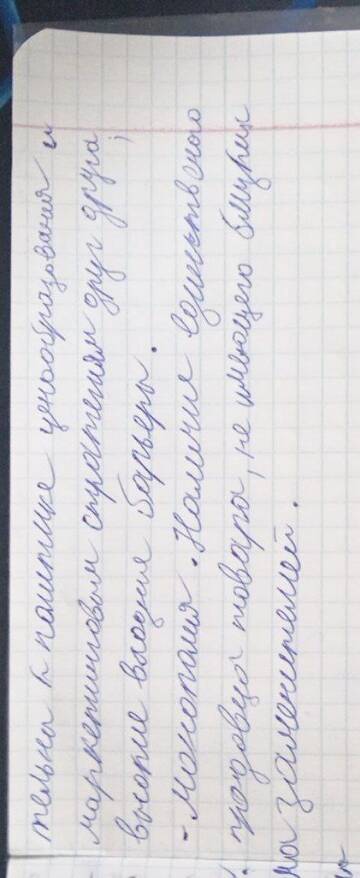 тельны к политике ценообразования и
маркетинговым стратегиям друг друга;
высокие входные барьеры.
- монополия. Наличие единственного
продавца товара, не имеющего близких
заменителей.